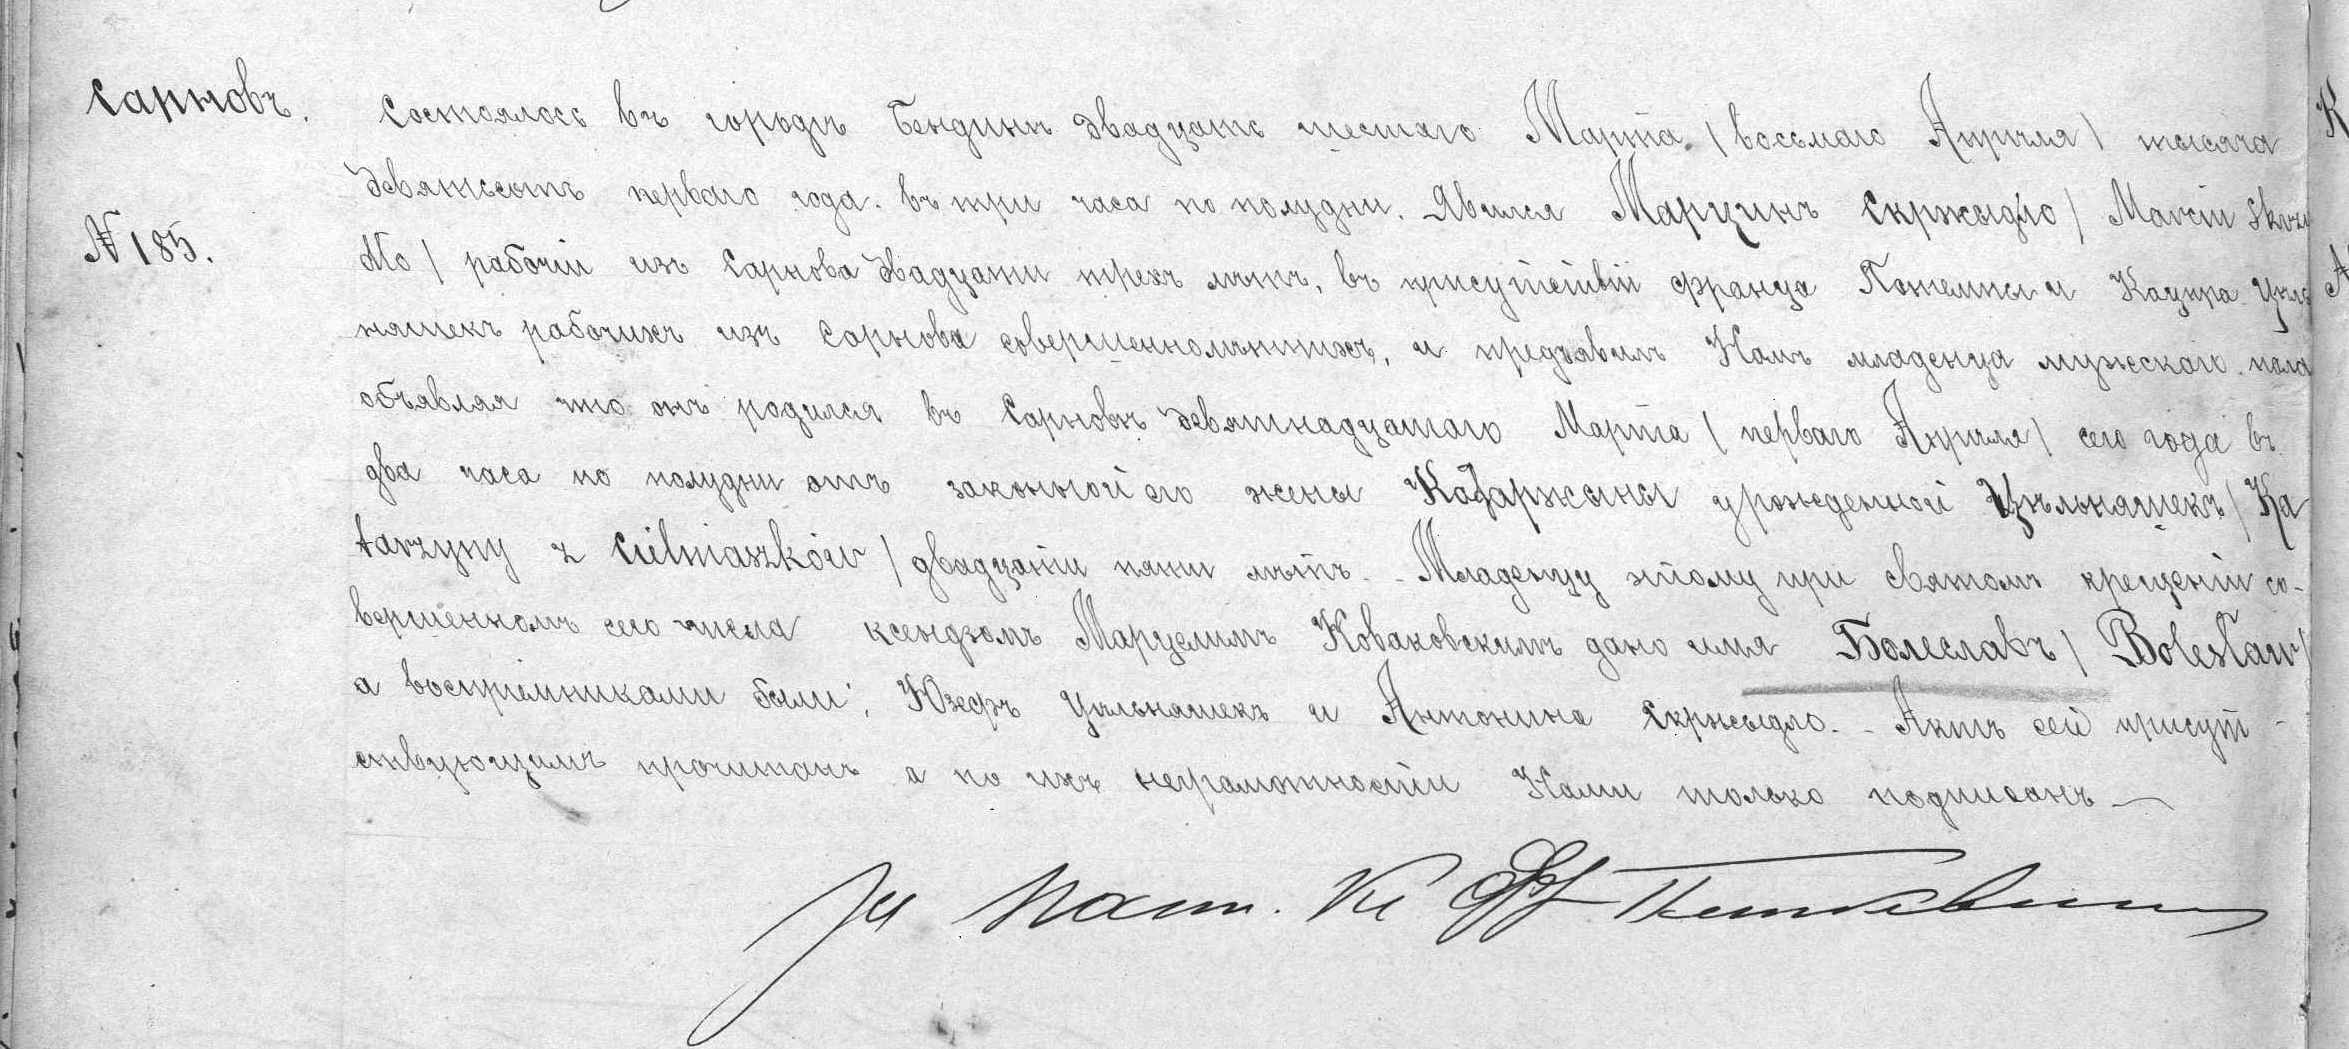 Сарновъ.
№ 185.
Состоялось въ городѣ Бендинѣ двадцать шестаго Марта (восьмаго Апрѣля) тысяча
девятьсотъ перваго года въ три часа по полудни. Явился Марцинъ Скржыдло (Marcin Skrzy
dło) рабочій изъ Сарнова двадцати трехъ лѣтъ, въ присутствіи Франца и Кацпра Цѣль
няшекъ рабочихъ изъ Сарнова совершеннолѣтнихъ, и предъявилъ Намъ младенца мужескаго пола
объявляя что онъ родился въ Сарновѣ девятнадцатаго Марта (перваго Апрѣля) сего года въ
два часа по полудни отъ законной его жены Катаржыны урожденной Цѣльняшекъ (Ka
tarzyny z Cielniaszków) двадцати пяти лѣтъ. - Младенцу этому при святомъ крещеніи со-
вершенномъ сего числа ксендзомъ Марцелимъ дано имя Болеславъ (Bolesław)
а воспріемниками были: Юзефъ Цѣльняшекъ и Антонина Скржыдло. - Актъ сей присут-
ствующимъ прочитанъ а по ихъ неграмотности Нами только подписанъ